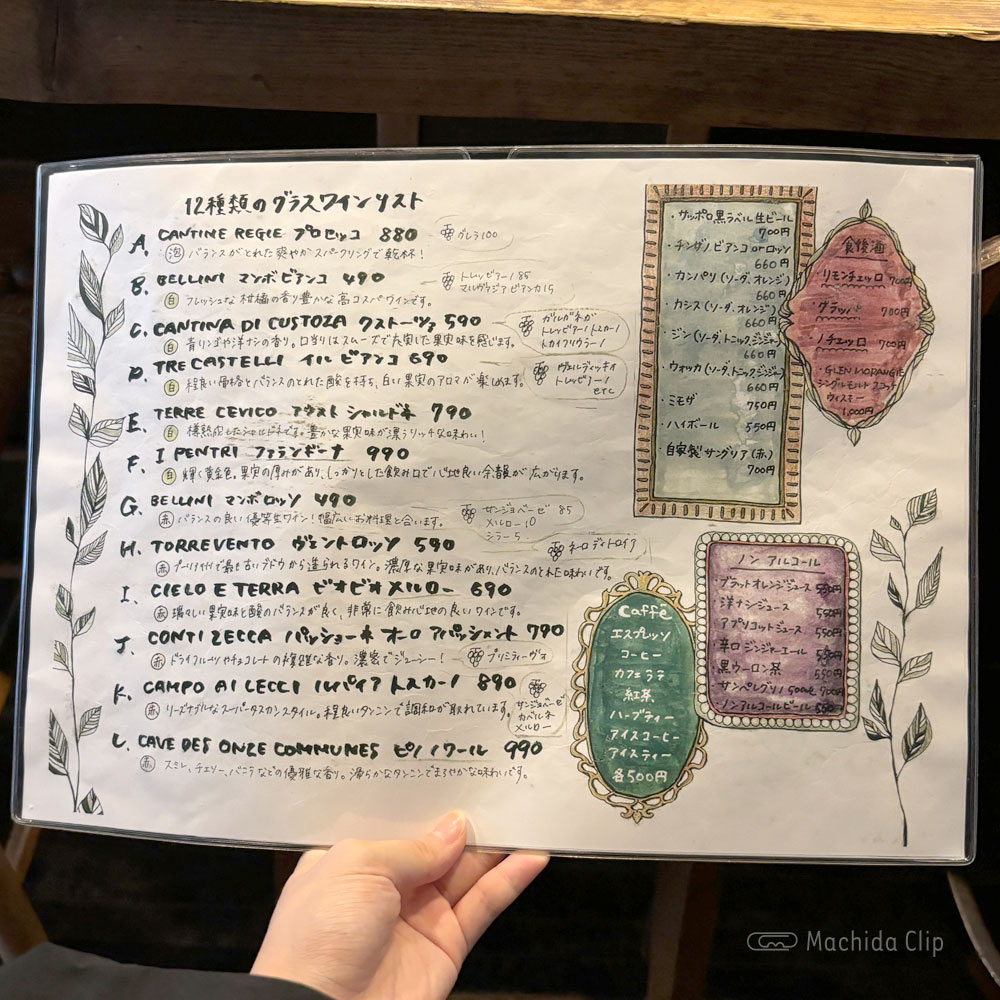 12種類のグラスワインリスト
A. CANTINE REGIE プロセッコ 880
グレラ100
泡 バランスがとれた爽やかスパークリングで乾杯！
B. BELLINI マンボビアンコ 490
トレッビアーノ85
マルヴァジアビアンカ15
白 フレッシュな柑橘の香り豊かな高コスパワインです。
C. CANTINA DI CUSTOZA クストーツァ 590
ガルガネガ
トレッビアーノトスカーノ
トカイフリウラーノ
白 青りんごや洋ナシの香り。口当りはスムーズで充実した果実味を感じます。
D. TRE CASTELLI イル ビアンコ 690
ヴェルディッキオ
トレッビアーノ
etc
白 程良い骨格とバランスのとれた酸を持ち、白い果実のアロマが楽しめます。
E. TERRE CEVICO アウスト シャルドネ 790
白 樽熟成したシャルドネです。豊かな果実味が漂うリッチな味わい！
F. I PENTRI ファランギーナ 990
白 輝く黄金色。果実の厚みがあり、しっかりとした飲み口で心地良い余韻が広がります。
G. BELLINI マンボロッソ 490
サンジョベーゼ 85
メルロー 10
シラー 5
赤 バランスの良い優等生ワイン！幅広いお料理と合います。
H. TORREVENTO ヴェントロッソ 590
ネーロ ディ トロイア
赤 プーリア州で最も古いブドウから造られるワイン。濃厚な果実味があり、バランスのとれた味わいです。
I. CIELO E TERRA ビオビオ メルロー 690
赤 瑞々しい果実味と酸のバランスが良く、非常に飲み心地の良いワインです。
J. CONTI ZECCA パッショーネ オーロ アパッシメント 790
赤 ドライフルーツやチョコレートの複雑な香り。濃密でジューシー！
プリミティーヴォ
K. CAMPO AI LECCI ルパイア トスカーノ 890
サンジョベーゼ
カベルネ
メルロー
赤 リーズナブルなスーパータスカンスタイル。程良いタンニンで調和が取れています。
L. CAVE DES ONZE COMMUNES ピノ ノワール 990
赤 スミレ、チェリー、バニラなどの優雅な香り。滑らかなタンニンでまろやかな味わいです。
・サッポロ黒ラベル生ビール
700円
・チンザノビアンコ or ロッソ
660円
・カンパリ(ソーダ、オレンジ)
660円
・カシス(ソーダ、オレンジ)
660円
・ジン(ソーダ、トニック、ジンジャー)
660円
・ウォッカ(ソーダ、トニック、ジンジャー)
660円
・ミモザ
750円
・ハイボール 550円
・自家製サングリア(赤)
700円
食後酒
リモンチェッロ 700円
グラッパ 700円
ノチェッロ 700円
GLEN MORANGIE
シングルモルト スコッチ
ウィスキー
1,000円
Caffé
エスプレッソ
コーヒー
カフェラテ
紅茶
ハーブティー
アイスコーヒー
アイスティー
各500円
ノンアルコール
・ブラッドオレンジジュース 550円
・洋ナシジュース 550円
・アプリコットジュース 550円
・辛口ジンジャーエール 550円
・黒ウーロン茶 550円
・サンペレグリノ 500ml 700円
・ノンアルコールビール 550円
Machida Clip